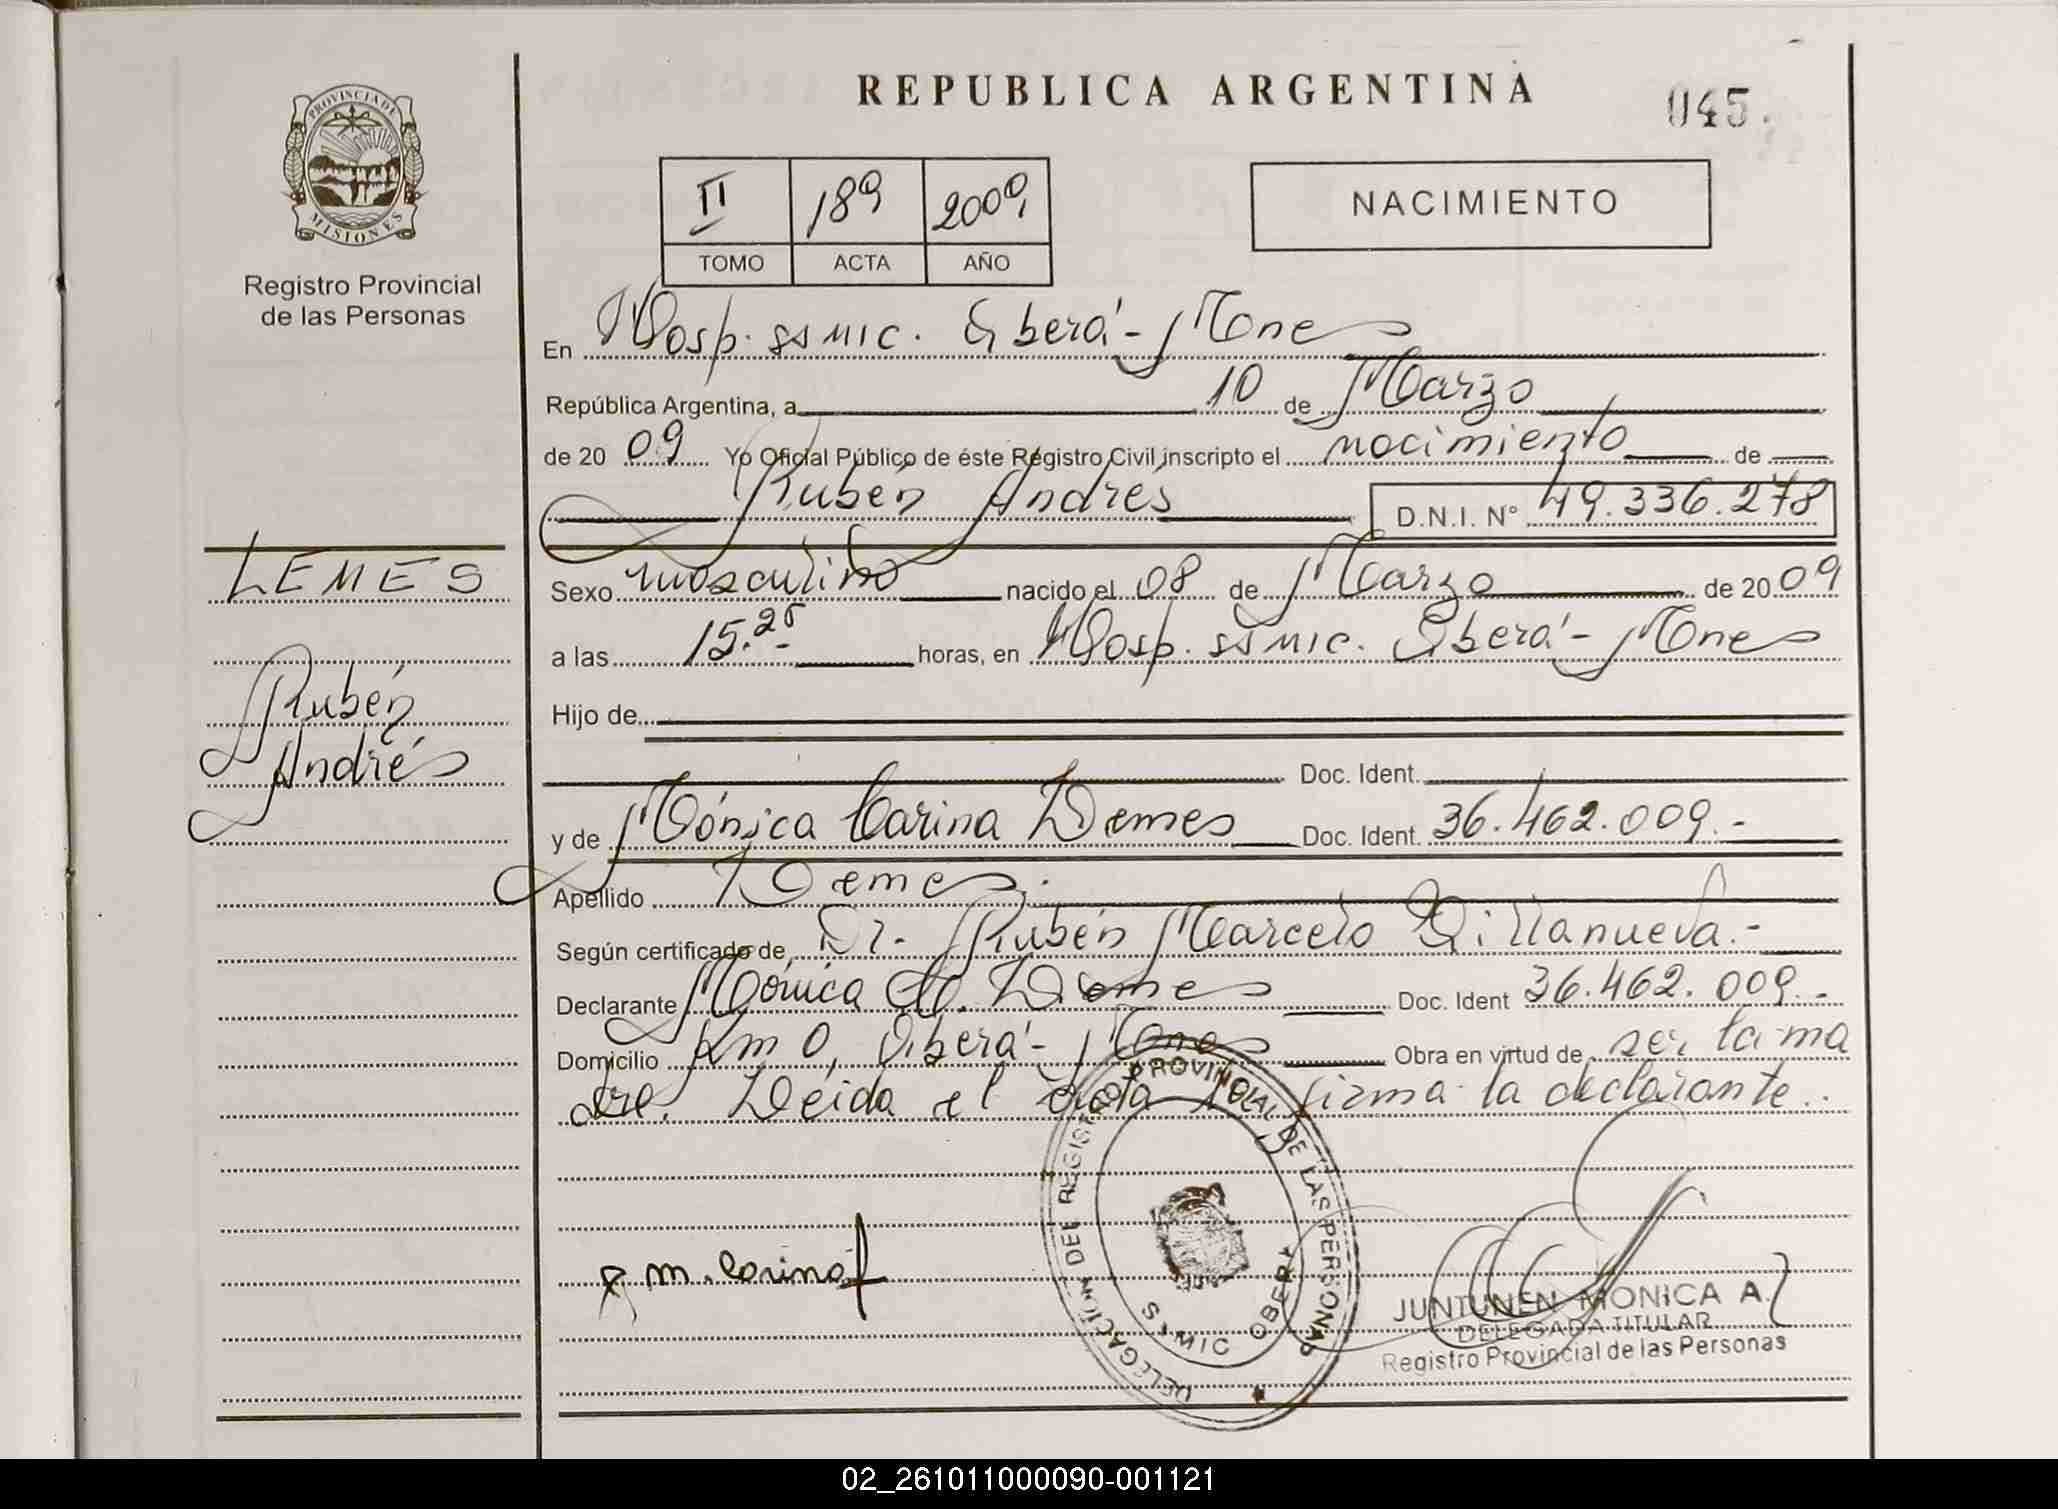 REPUBLICA ARGENTINA
045.
PROVINCIA DE
MISIONES
Registro Provincial
de las Personas
II 189 2009
TOMO ACTA AÑO
NACIMIENTO
En Hosp. SAMIC. Oberá - Mnes
República Argentina, a 10 de Marzo
de 20 09 Yo Oficial Público de éste Registro Civil inscripto el nacimiento de
Rubén Andrés D.N.I. N° 49.336.278
LEMES
Rubén
Andrés
Sexo masculino nacido el 08 de Marzo de 20 09
a las 15.25 horas, en Hosp. SAMIC. Oberá - Mnes
Hijo de
Doc. Ident.
y de Mónica Carina Lemes Doc. Ident. 36.462.009.-
Apellido Lemes.
Según certificado de Dr. Rubén Marcelo Villanueva.-
Declarante Mónica C. Lemes Doc. Ident 36.462.009.-
Domicilio Km 0, Oberá - Mnes Obra en virtud de ser la ma
dre. Leída el Acta firma la declarante..
m. Carina L
DELEGACIÓN DEL REGISTRO PROVINCIAL DE LAS PERSONAS
SAMIC OBERA
JUNTUNEN MONICA A.
DELEGADA TITULAR
Registro Provincial de las Personas
02_261011000090-001121